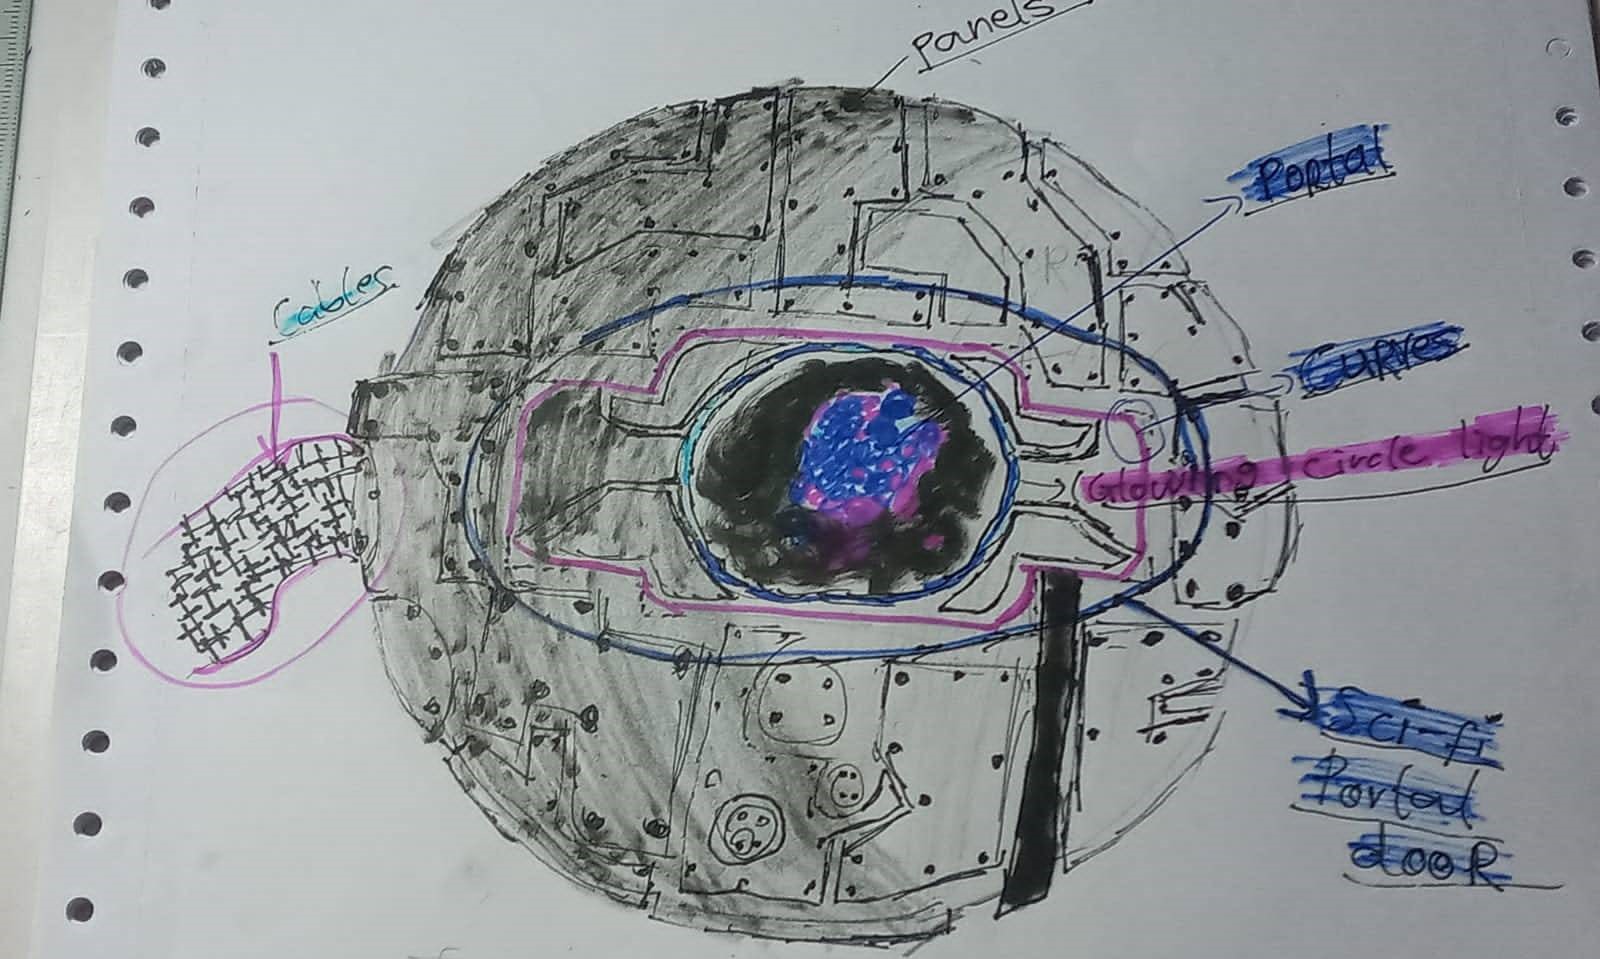 Panels
Portal
Cables
Curves
Glowing circle light
Sci-fi
Portal
dooR
R